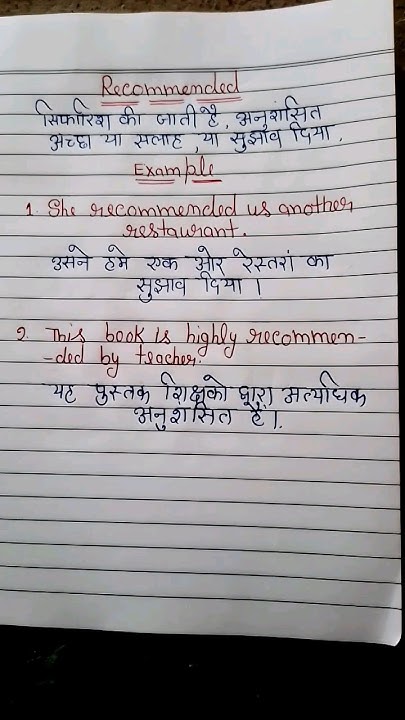 Recommended
सिफारिश की जाती है, अनुशंसित
अच्छा या सलाह, या सुझाव दिया.
Example
1. She recommended us another
restaurant.
उसने हमे एक ओर रेस्तरां का
सुझाव दिया।
2. This book is highly recommen-
-ded by teacher.
यह पुस्तक शिक्षको द्वारा अत्यधिक
अनुशंसित हैं।.